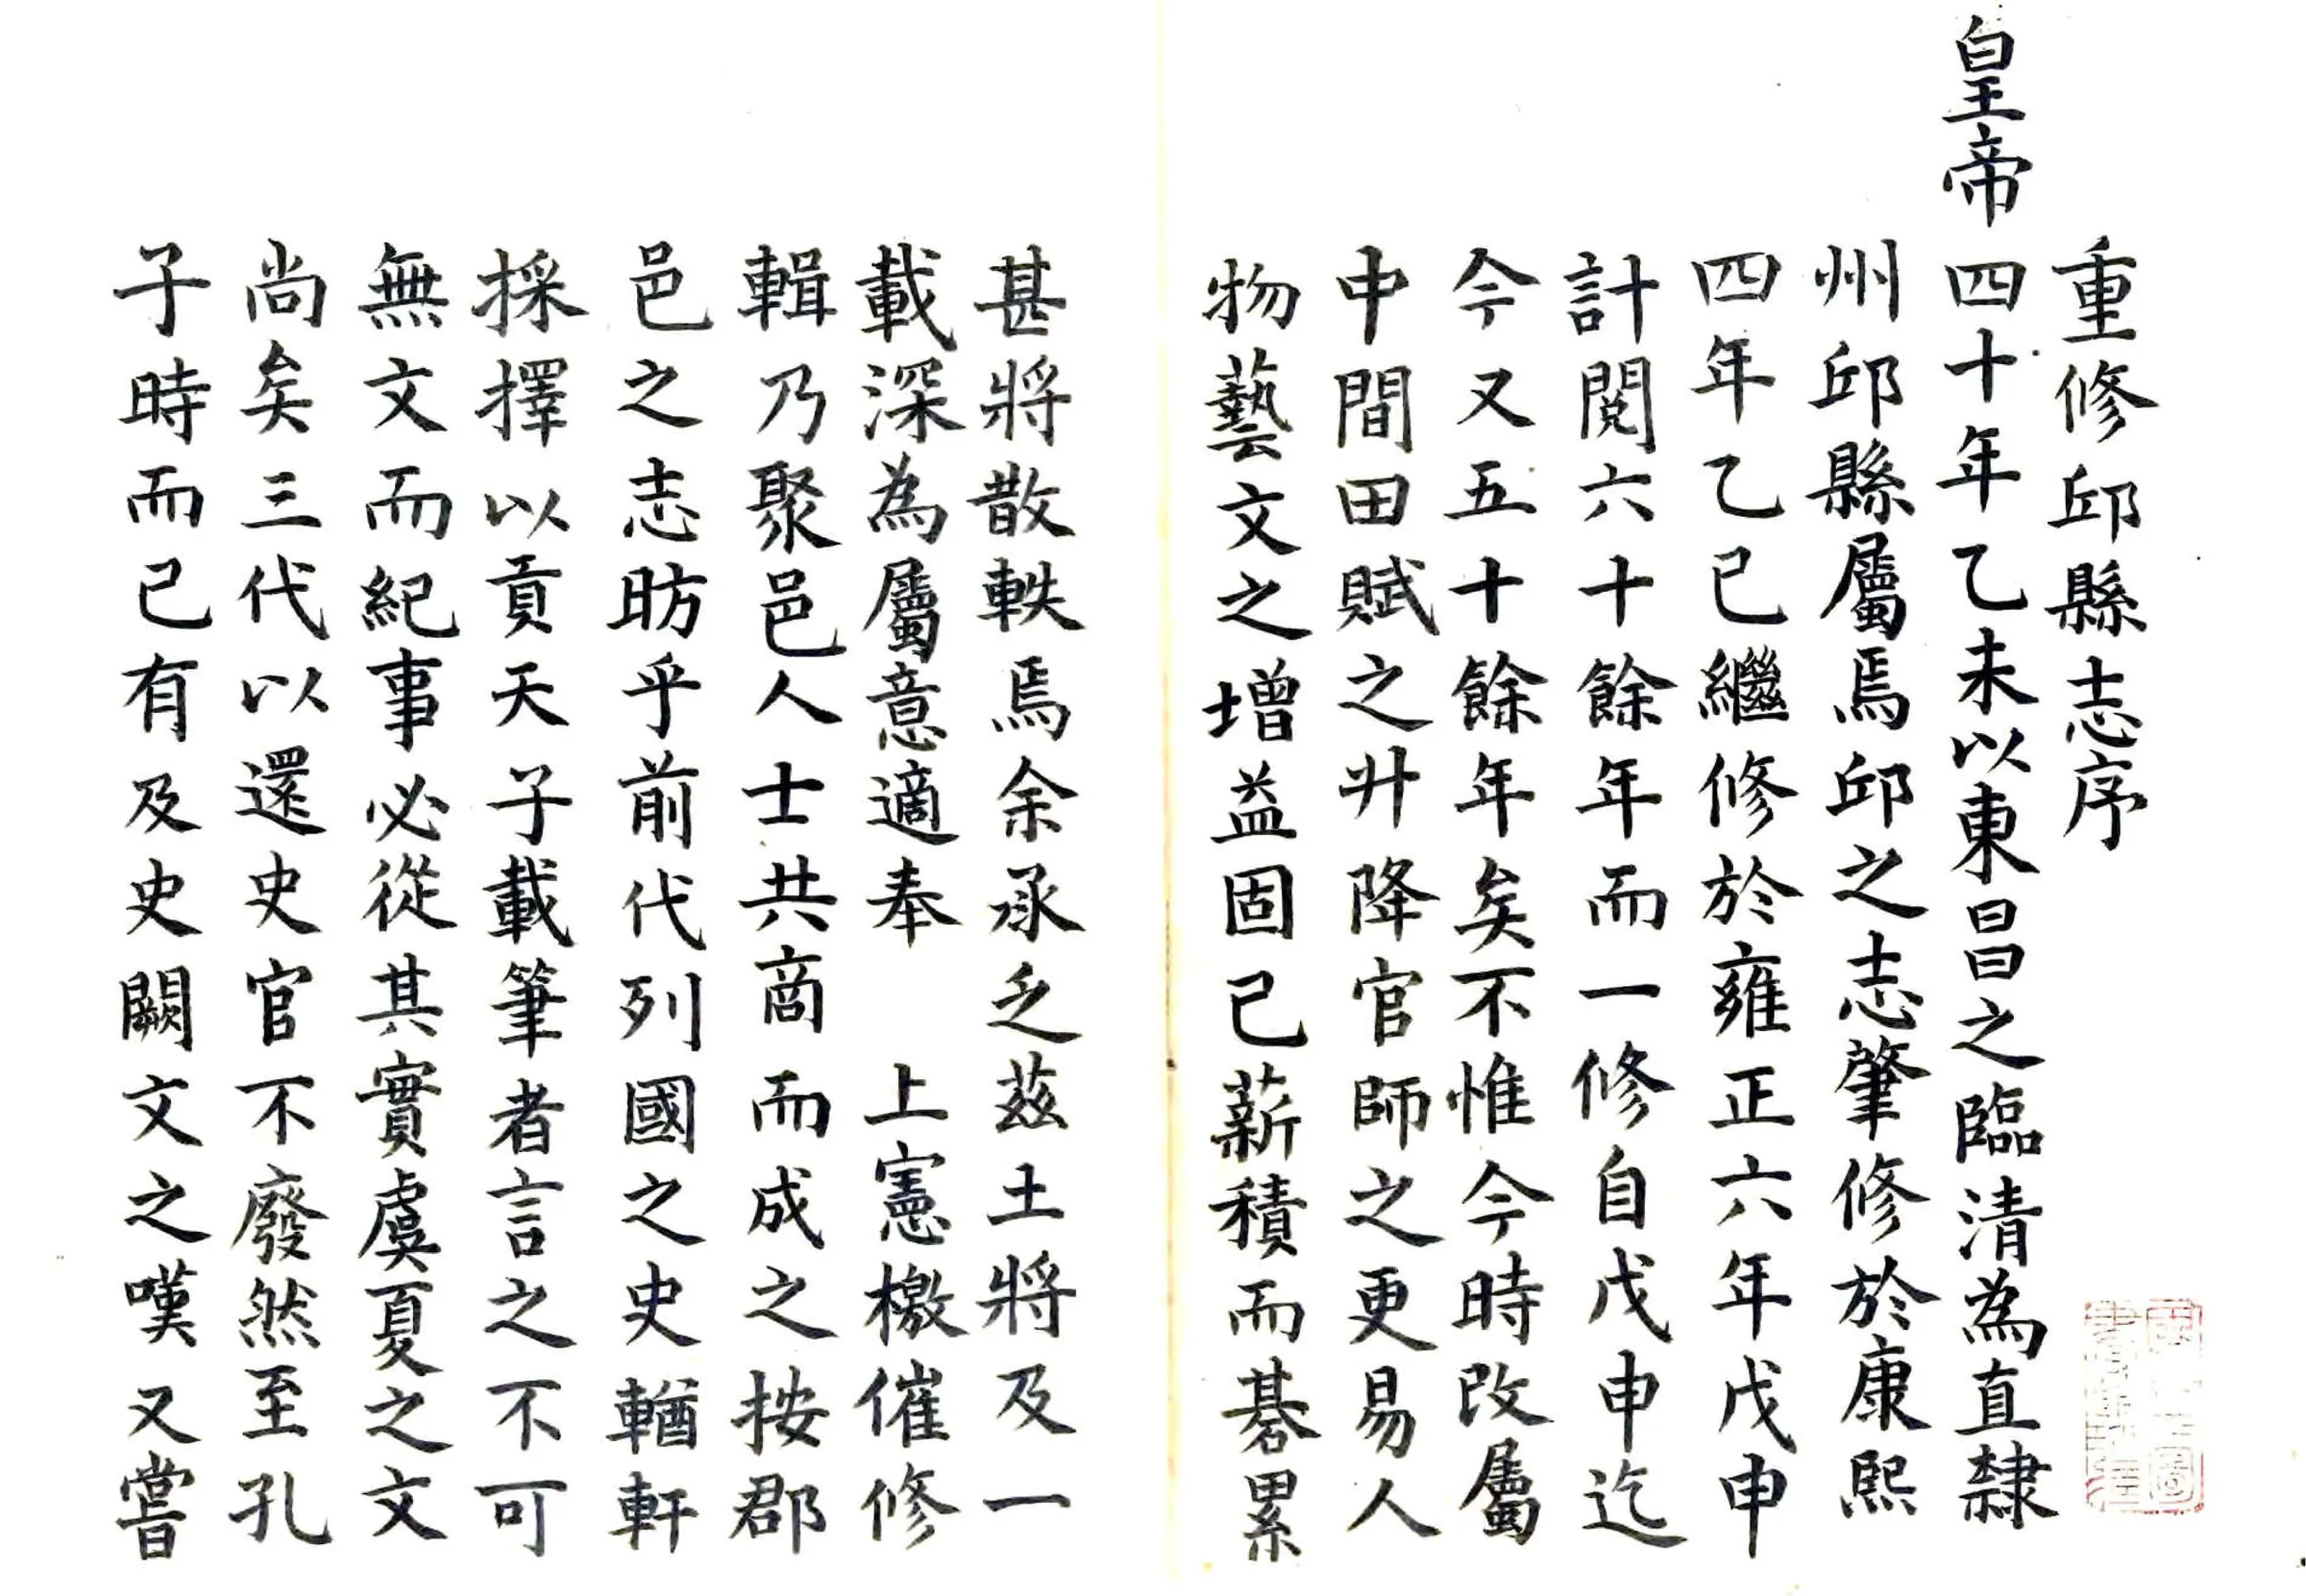 重修邱縣志序
皇帝四十年乙未以東昌之臨清為直隸
州邱縣屬焉邱之志肇修於康熙
四年乙巳繼修於雍正六年戊申
計閱六十餘年而一修自戊申迄
今又五十餘年矣不惟今時改屬
中間田賦之升降官師之更易人
物藝文之增益固已薪積而碁累
甚將散軼焉余承乏茲土將及一
載深為屬意適奉 上憲檄催修
輯乃聚邑人士共商而成之按郡
邑之志昉乎前代列國之史輶軒
採擇以貢天子載筆者言之不可
無文而紀事必從其實虞夏之文
尚矣三代以還史官不廢然至孔
子時而已有及史闕文之嘆又嘗